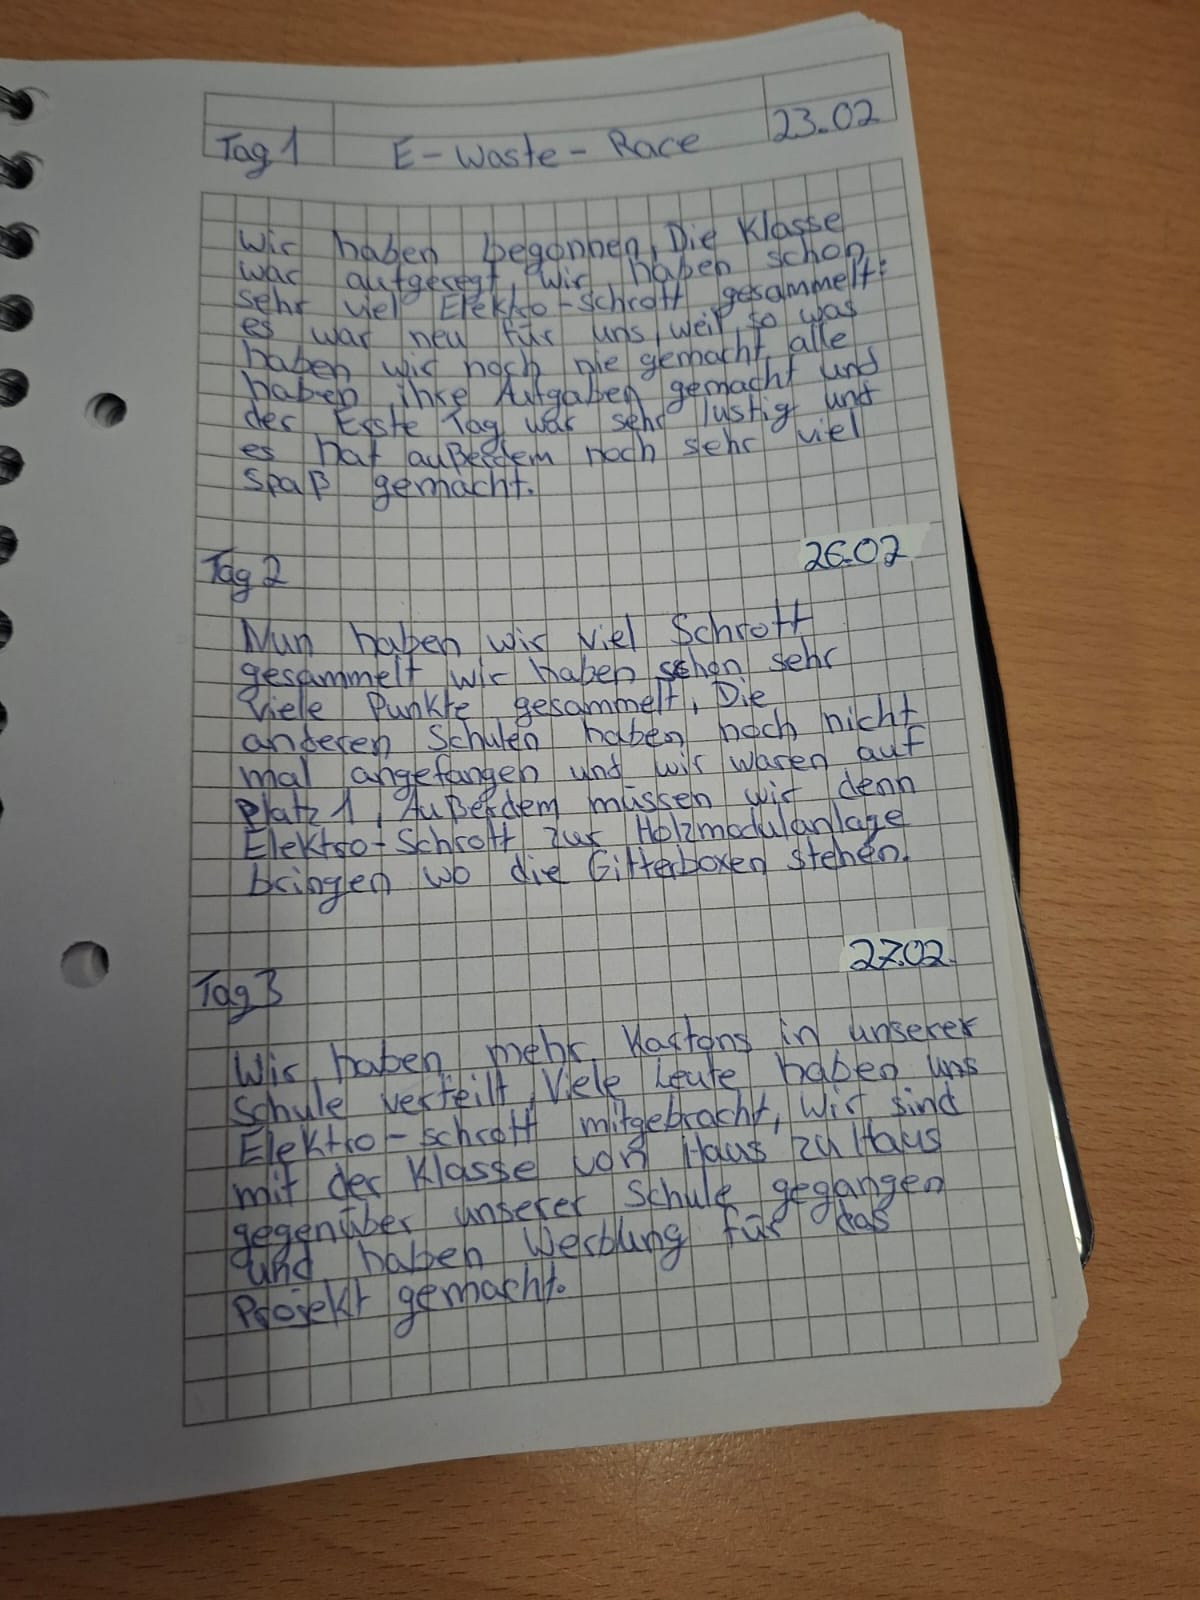 Tag 1 E-Waste-Race 23.02
Wir haben begonnen, Die Klasse
war aufgeregt, wir haben schon
sehr viel Elektro-schrott gesammelt:
es war neu für uns, weil so was
haben wir noch nie gemacht, alle
haben ihre Aufgaben gemacht und
der Erste Tag war sehr lustig und
es hat außerdem noch sehr viel
spaß gemacht.
Tag 2 26.02
Nun haben wir viel Schrott
gesammelt wir haben schon sehr
viele Punkte gesammelt, Die
anderen Schulen haben noch nicht
mal angefangen und wir waren auf
Platz 1, Außerdem müssen wir denn
Elektro-Schrott zur Holzmodulanlage
bringen wo die Gitterboxen stehen.
Tag 3 27.02.
Wir haben mehr Kartons in unserer
Schule verteilt, Viele Leute haben uns
Elektro-schrott mitgebracht, Wir sind
mit der Klasse von Haus zu Haus
gegenüber unserer Schule gegangen
und haben Werbung für das
Projekt gemacht.